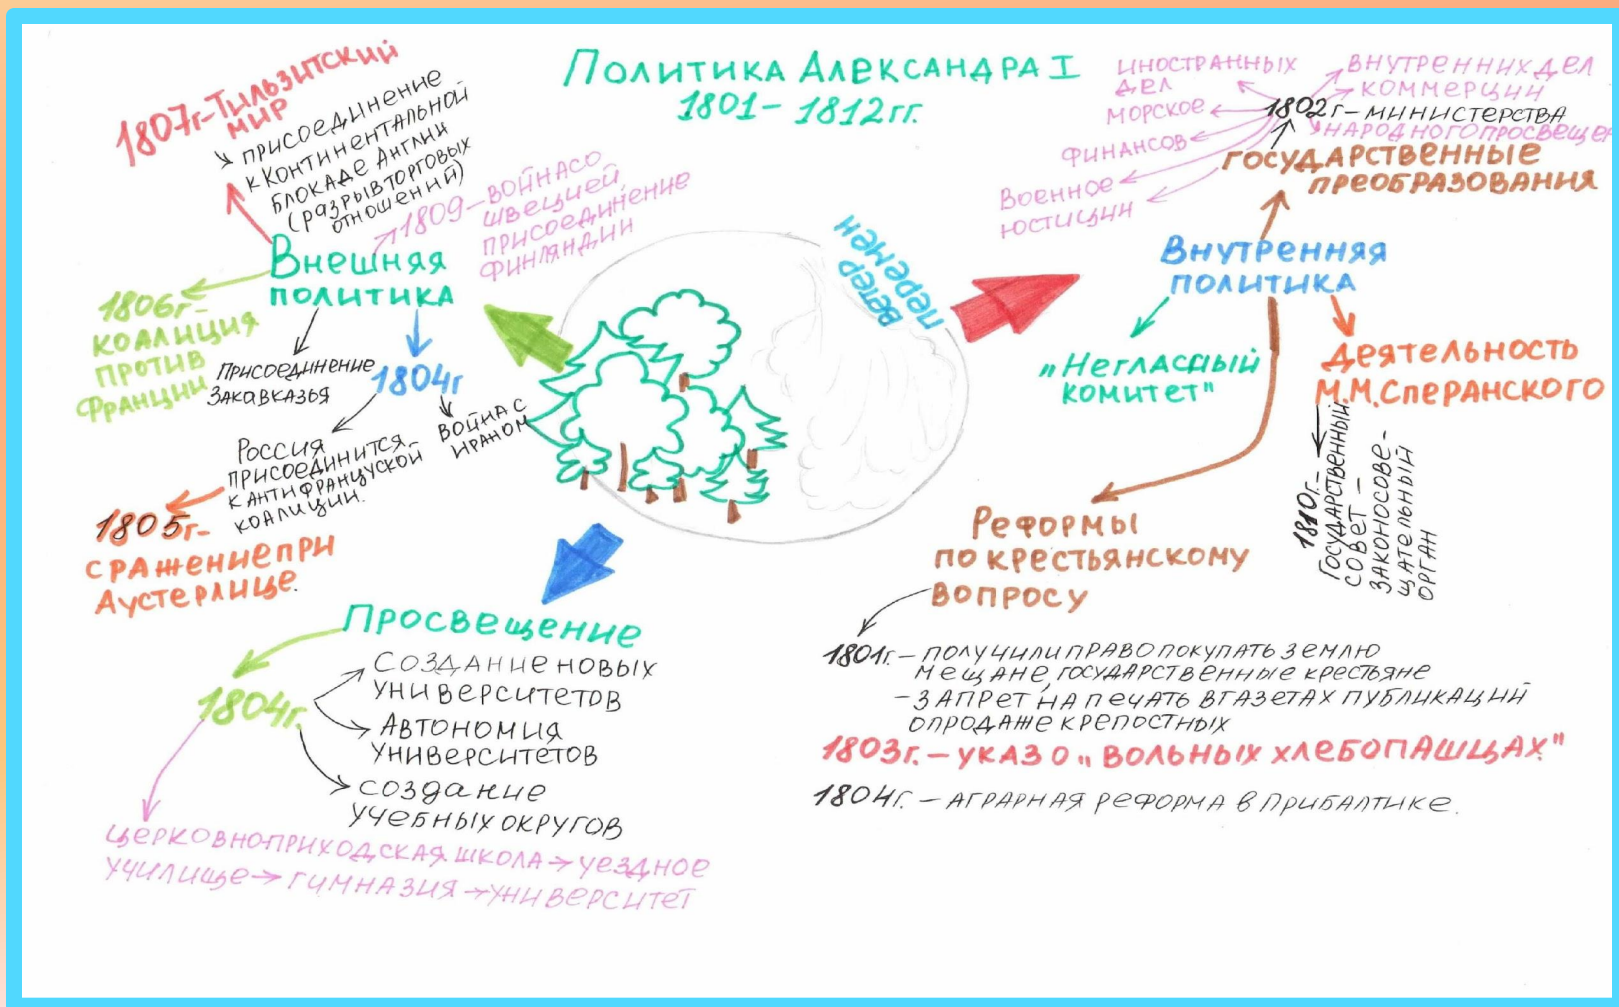 Политика Александра I
1801 – 1812 гг.
1807г-Тильзитский
мир
присоединение
к Континентальной
блокаде Англии
(разрыв торговых
отношений)
1809 – война со
Швецией,
присоединение
Финляндии
Внешняя
политика
1806г-
коалиция
против
Франции
Присоединение
Закавказья
1804г
война с
Ираном
Россия
присоединится
к антифранцуской
коалиции.
1805г-
сражение при
Аустерлице.
Просвещение
1804г.
Создание новых
университетов
Автономия
университетов
создание
учебных округов
церковно-приходская школа → уездное
училище → гимназия → университет
ветер
перемен
Внутренняя
политика
государственные
преобразования
1802г – министерства
иностранных
дел
морское
финансов
Военное
юстиции
внутренних дел
коммерции
народного просвеще
„Негласный
комитет"
Деятельность
М.М.Сперанского
1810г. –
Государственный
совет –
законосове-
щательный
орган
Реформы
по крестьянскому
вопросу
1801г. – получили право покупать землю
мещане, государственные крестьяне
– запрет на печать в газетах публикаций
о продаже крепостных
1803г. – указ о „вольных хлебопашцах"
1804г. – аграрная реформа в Прибалтике.